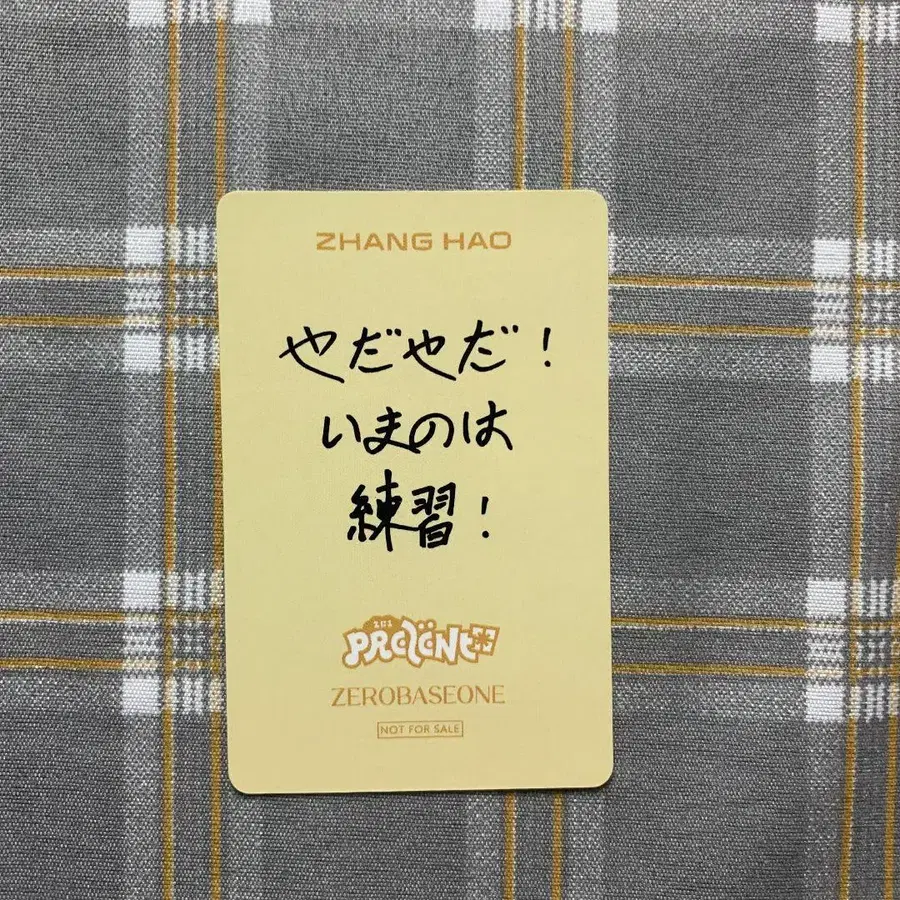 ZHANG HAO
やだやだ！
いまのは
練習！
PREZENT
ZEROBASEONE
NOT FOR SALE